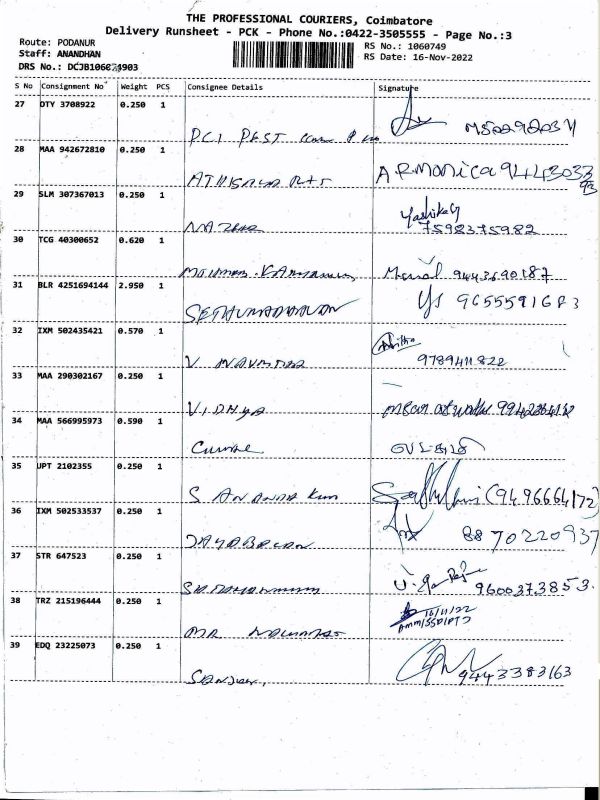 THE PROFESSIONAL COURIERS, Coimbatore
Delivery Runsheet - PCK - Phone No.:0422-3505555 - Page No.:3
Route: PODANUR
RS No.: 1060749
Staff: ANANDHAN
RS Date: 16-Nov-2022
DRS No.:
S No Consignment No Weight PCS Consignee Details Signature
27 DTY 3708922 0.250 1
PCI PEST
28 MAA 942672810 0.250 1
ARMonica 9443033
29 SLM 307367013 0.250 1
Yashika
7598375982
30 TCG 40300652 0.620 1
9443690187
31 BLR 4251694144 2.950 1
SETHUMADHAVAN 9655591683
32 IXM 502435421 0.570 1
V 9789411822
33 MAA 290302167 0.250 1
VIDHYA
34 MAA 566995973 0.590 1
35 UPT 2102355 0.250 1
S ANANDA Kum (9496664172)
36 IXM 502533537 0.250 1
DAYABALAN 8870220937
37 STR 647523 0.250 1
9600373853.
38 TRZ 215196444 0.250 1
16/11/22
MR
39 EDQ 23225073 0.250 1
9443383163